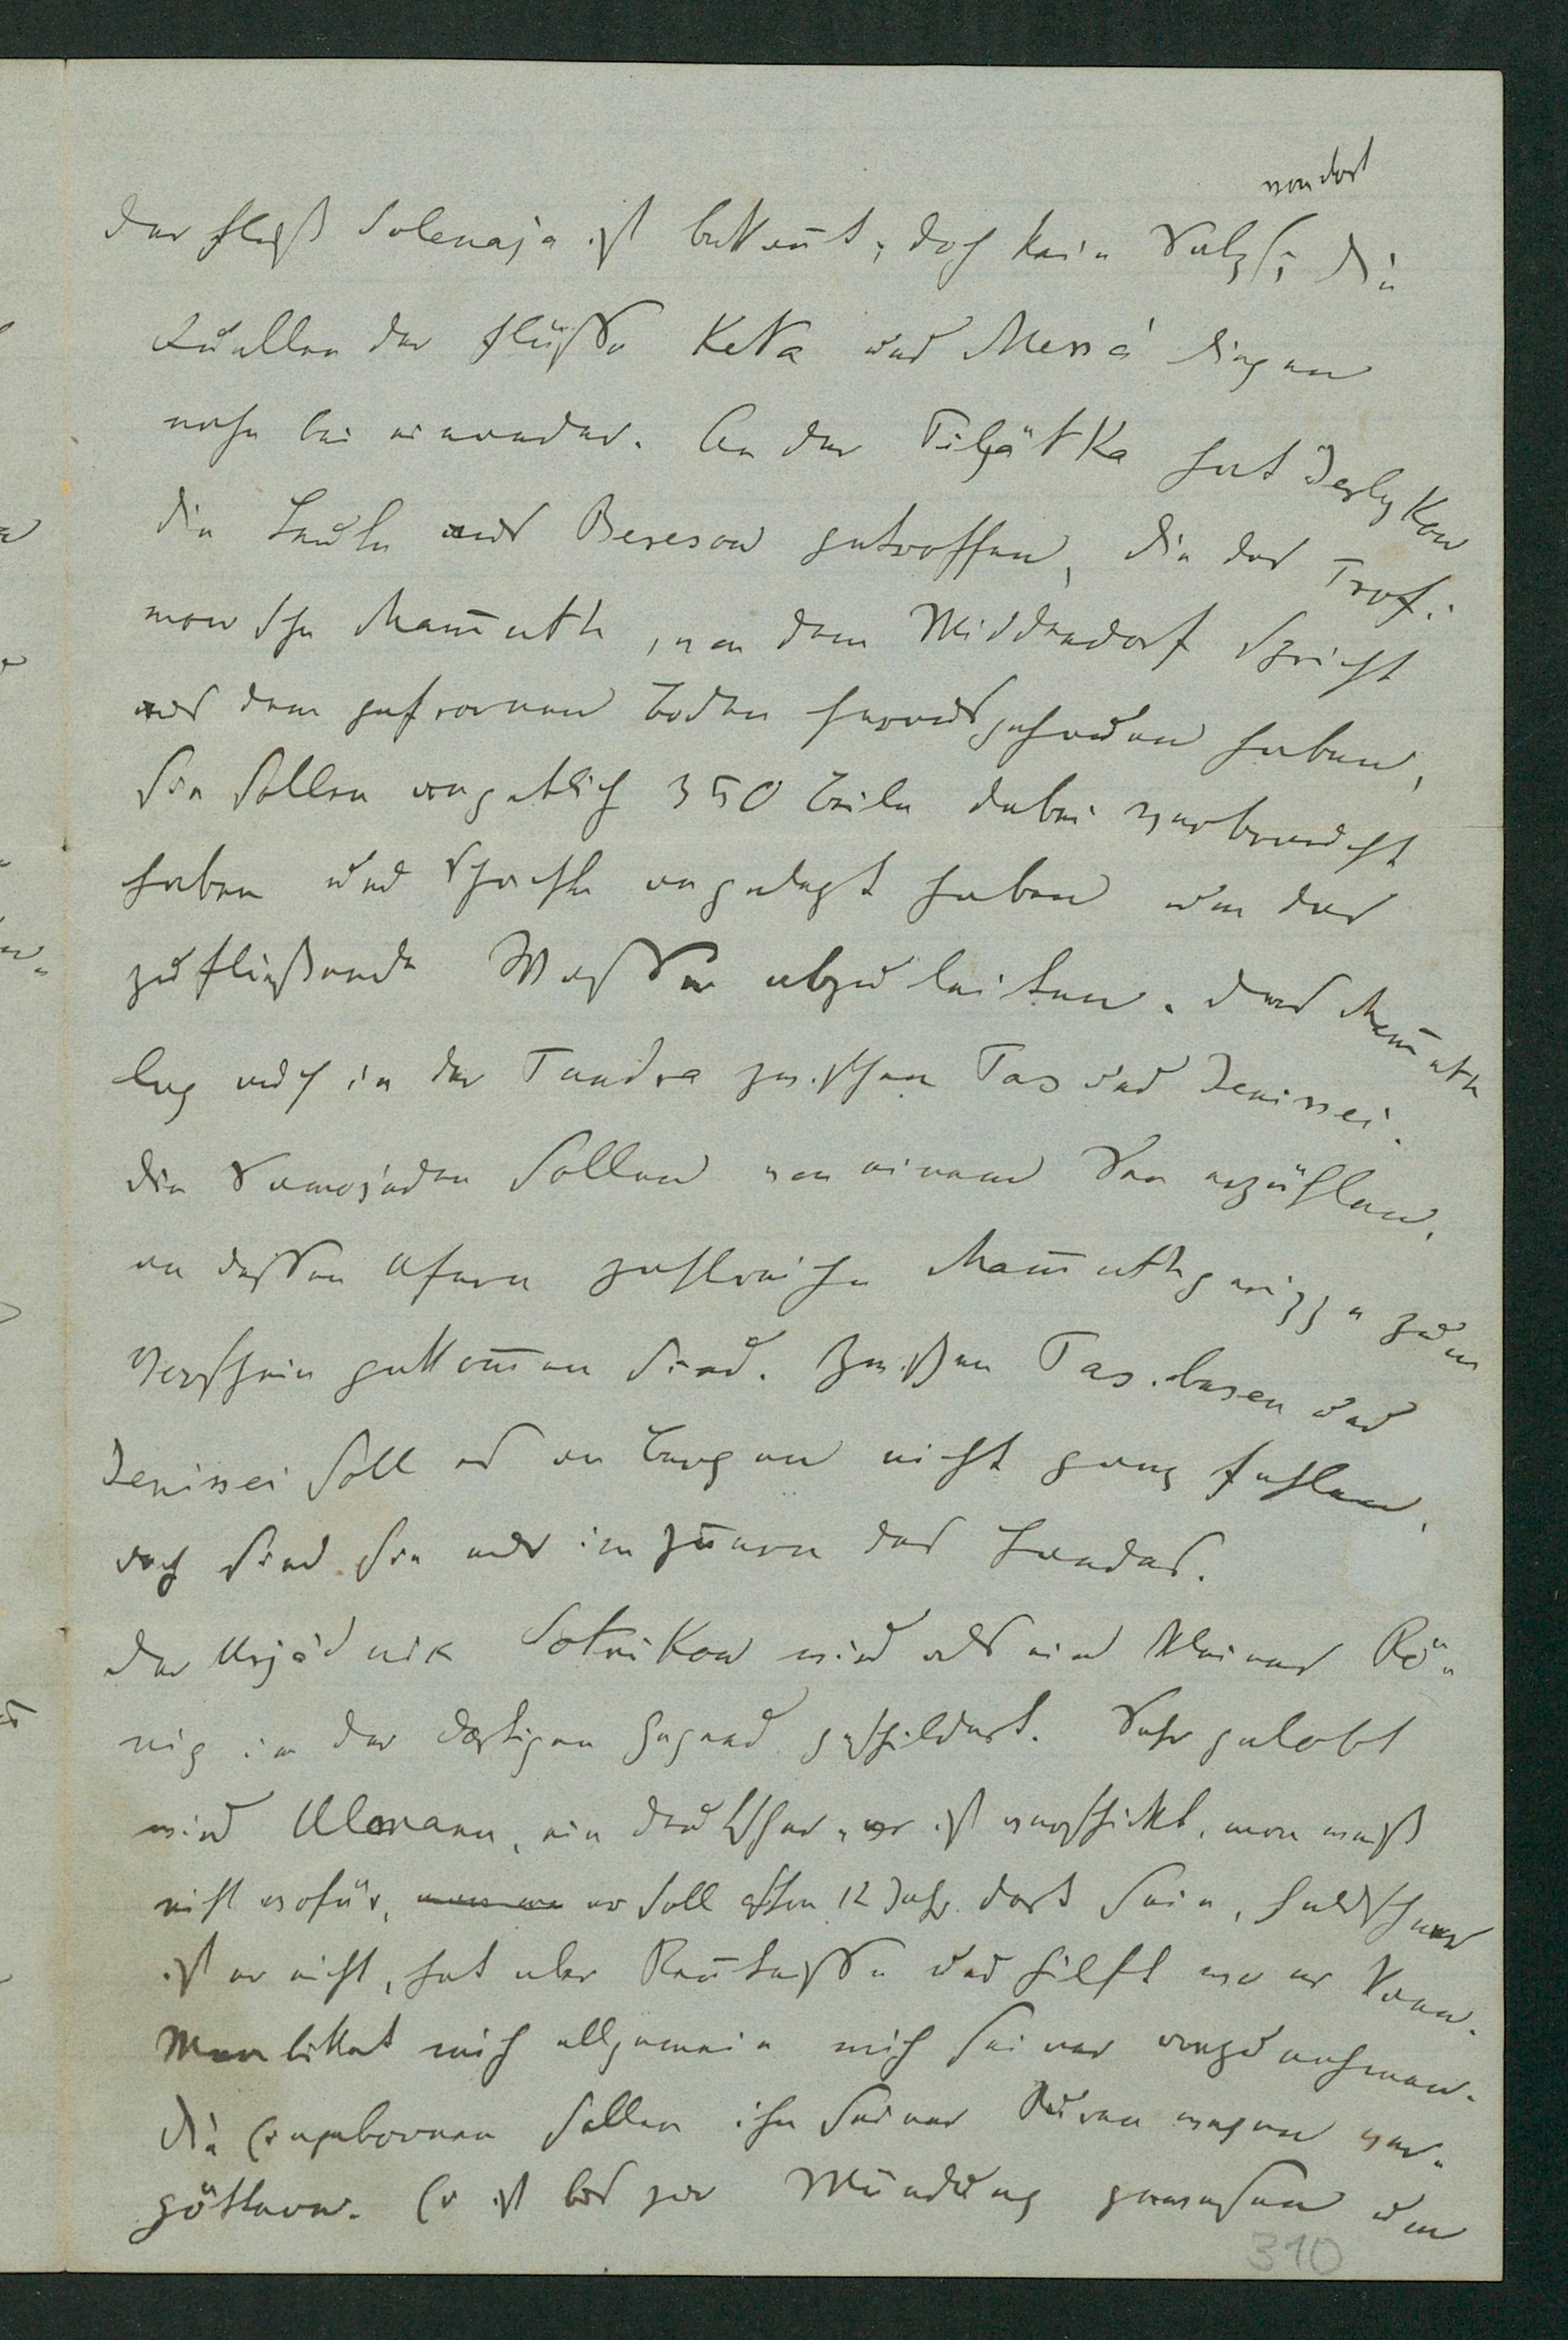 von dort
der Fluß Solenaja ist bekañt, doch kein Salz; die
Quellen der Flüsse Keta und Messá liegen
nahe bei einander. An der Filjätka hat Jerlykow
die Leute aus Beresow getroffen, die das Trofi-
mowsche Mam̄uth, von dem Middendorf spricht
aus dem gefrornen Boden herausgehauen haben,
sie sollen angeblich 350 Beile dabei verbraucht
haben und Schachte angelegt haben um das
zufließende Wasser abzuleiten. Das Mam̄uth
lag auch in der Tundra zwischen Tas und Jenissei.
Die Samojeden sollen von einem See erzählen,
an dessen Ufern zahlreiche Mam̄uthgerippe zum
Vorschein gekom̄en sind. Zwischen Tas-busen und
Jenissei soll es an Bergen nicht ganz fehlen,
doch sind sie nur im Iñern des Landes.
Der Urjädnik Sotnikow wird als ein kleiner Kö-
nig in der dortigen Gegend geschildert. Sehr gelobt
wird Ulmann, ein Deutscher, er ist verschickt, man weiß
nicht wofür, er soll schon 12 Jahr dort sein, Feldscheer
ist er nicht, hat aber Keñtnisse und hilft wo er kann.
Man bittet mich allgemein mich seiner anzunehmen.
Die Eingebornen sollen ihn seiner Kuren wegen ver-
göttern. Er ist bis zur Mündung gewesen um
310